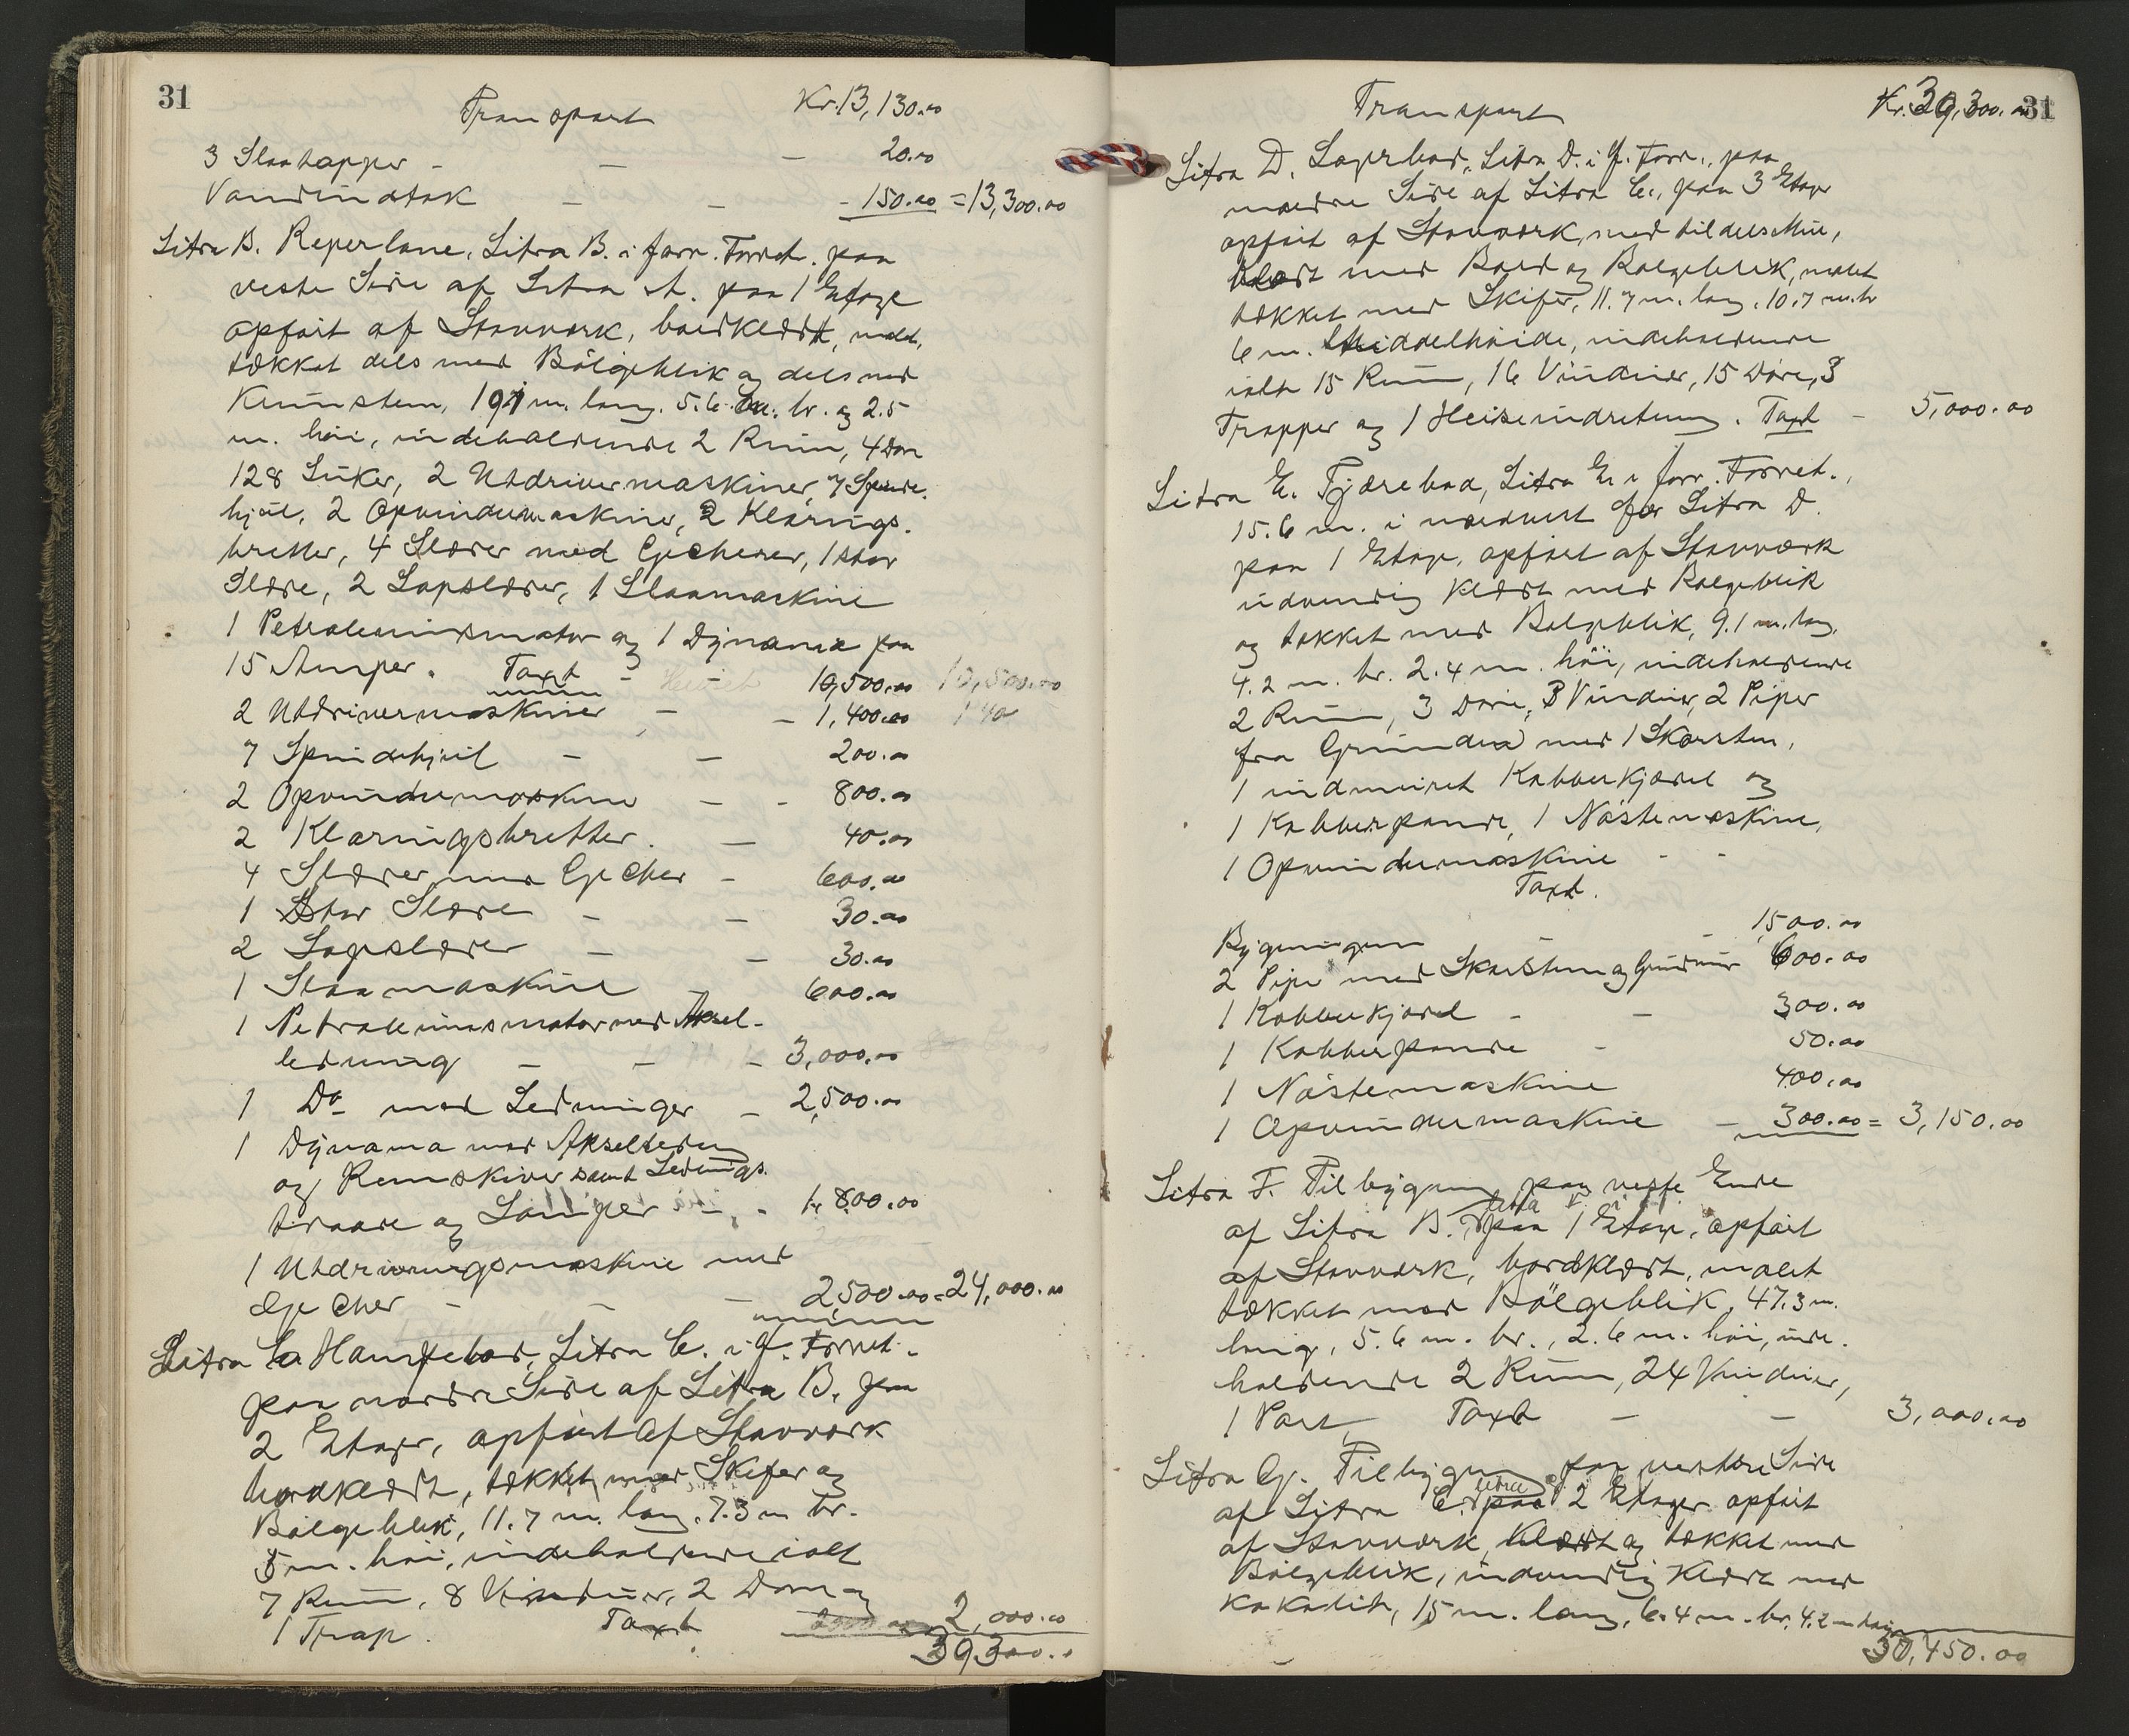 31
Transport Kr. 13,130.00
3 Slaatapper - - - 20.00
Vandindtak - - - 150.00 = 13,300.00
Litra B. Reperbane, Litra B. i forr. Forret. paa
vestre Side af Litra A. paa 1 Etage
opført af Stavværk, bordklædt, malt,
tækket dels med Bölgeblik og dels med
Kunststen, 191 m. lang. 5.6 m. br. og 2.5
m. höi, indeholdende 2 Rum, 4 Döre
128 Luker, 2 Utdrivermaskiner, 7 Spinde-
hjul, 2 Opvindermaskiner, 2 Klarings-
bretter, 4 Slæder med Gecherer, 1 stor
Slæde, 2 Lapslæder, 1 Slaamaskine
1 Petroleumsmotor og 1 Dynamo paa
15 Amper. Taxt - - 10,500.00
2 Utdrivermaskiner - - 1,400.00
7 Spindehjul - - 200.00
2 Opvindermaskine - - 800.00
2 Klaringsbretter. - 40.00
4 Slæder med Gecher - 600.00
1 Stor Slæde - - 30.00
2 Lapslæder - - 30.00
1 Slaamaskine - 600.00
1 Petroleumsmotor med Aksel-
ledning - - - 3,000.00
1 Do med Ledninger - 2,500.00
1 Dynamo med Akselledn
og Remskiver samt Lednings-
traade og Lamper - - 1,800.00
1 Utdrivningsmaskine med
Gecher - - - 2,500.00 = 24,000.00
Litra C. Hampebod, Litra C. i f. Forret.
paa nordre Side af Litra B. paa
2 Etager, opført af Stavværk
bordklædt, tækket med Skifer og
Bölgeblik, 11.7 m. lang. 7.3 m br.
5 m. höi, indeholdende ialt
7 Rum, 8 Vinduer, 2 Döre og
1 Trap. Taxt 2,000.00
39,300.00
31
Transport Kr. 39,300.00
Litra D. Lagerbod, Litra D. i f. Forr., paa
nordre Side af Litra C., paa 3 Etager
opført af Stavværk, med tildels Mur,
klædt med Bord og Bølgeblik, malet
tækket med Skifer, 11.7 m. lang. 10.7 m. br
6 m. Middelhöide, indeholdende
ialt 15 Rum, 16 Vinduer, 15 Döre, 3
Trapper og 1 Heiseindretning. Taxt - 5,000.00
Litra E. Tjærebod, Litra E i forr. Forret.,
15.6 m. i nordvest for Litra D.
paa 1 Etage, opført af Stavværk
indvendig klædt med Bølgeblik
og tækket med Bølgeblik, 9.1 m. lang,
4.2 m. br. 2.4 m. höi, indeholdende
2 Rum, 3 Döre, 3 Vinduer, 2 Piper
fra Grunden med 1 Skorsten,
1 indmuret Kobberkjedel og
1 Kobberpande, 1 Nöstemaskine,
1 Opvindermaskine - -
Taxt.
Bygningen - - 1,500.00
2 Piper med Skorsten og Grundmur 600.00
1 Kobberkjedel - - 300.00
1 Kobberpande - 50.00
1 Nöstemaskine 400.00
1 Opvindermaskine - 300.00 = 3,150.00
Litra F. Tilbygning paa vestre Ende
af Litra B. paa 1 Etage, opført
af Stavværk, bordklædt, malet
tækket med Bölgeblik, 47.3 m.
lang, 5.6 m. br., 2.6 m. höi, inde-
holdende 2 Rum, 24 Vinduer,
1 Port, Taxt - - 3,000.00
Litra G. Tilbygning paa vestre Side
af Litra C. paa 2 Etager opført
af Stavværk, klædt og tækket med
Bölgeblik, indvendig klædt med
Kokolit, 15 m. lang, 6.4 m. br. 4.2 m höi
50,450.00